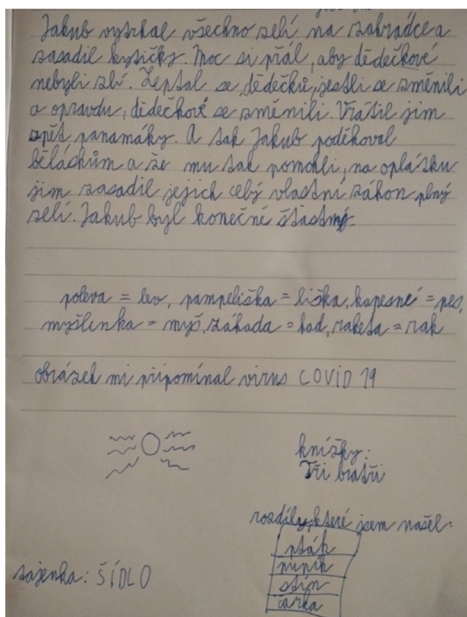 Jakub vytrhal všechno zelí na zahrádce a
zasadil kytičky. Moc si přál, aby dědečkové
nebyli zlí. Zeptal se, dědečků, jestli se změnili
a opravdu, dědečkové se změnili. Vrátil jim
zpět panamáky. A tak Jakub poděkoval
běláskům a že mu tak pomohli, na oplátku
jim zasadil jejich celý vlastní záhon plný
zelí. Jakub byl konečně šťastný.
poleva = lev, pampeliška = liška, kapesné = pes,
myšlenka = myš, záhada = had, raketa = rak
obrázek mi připomínal virus COVID 19
knížky:
Tři bratři
rozdíly, které jsem našel:
pták
pupík
stín
čárka
tajenka: ŠÍDLO